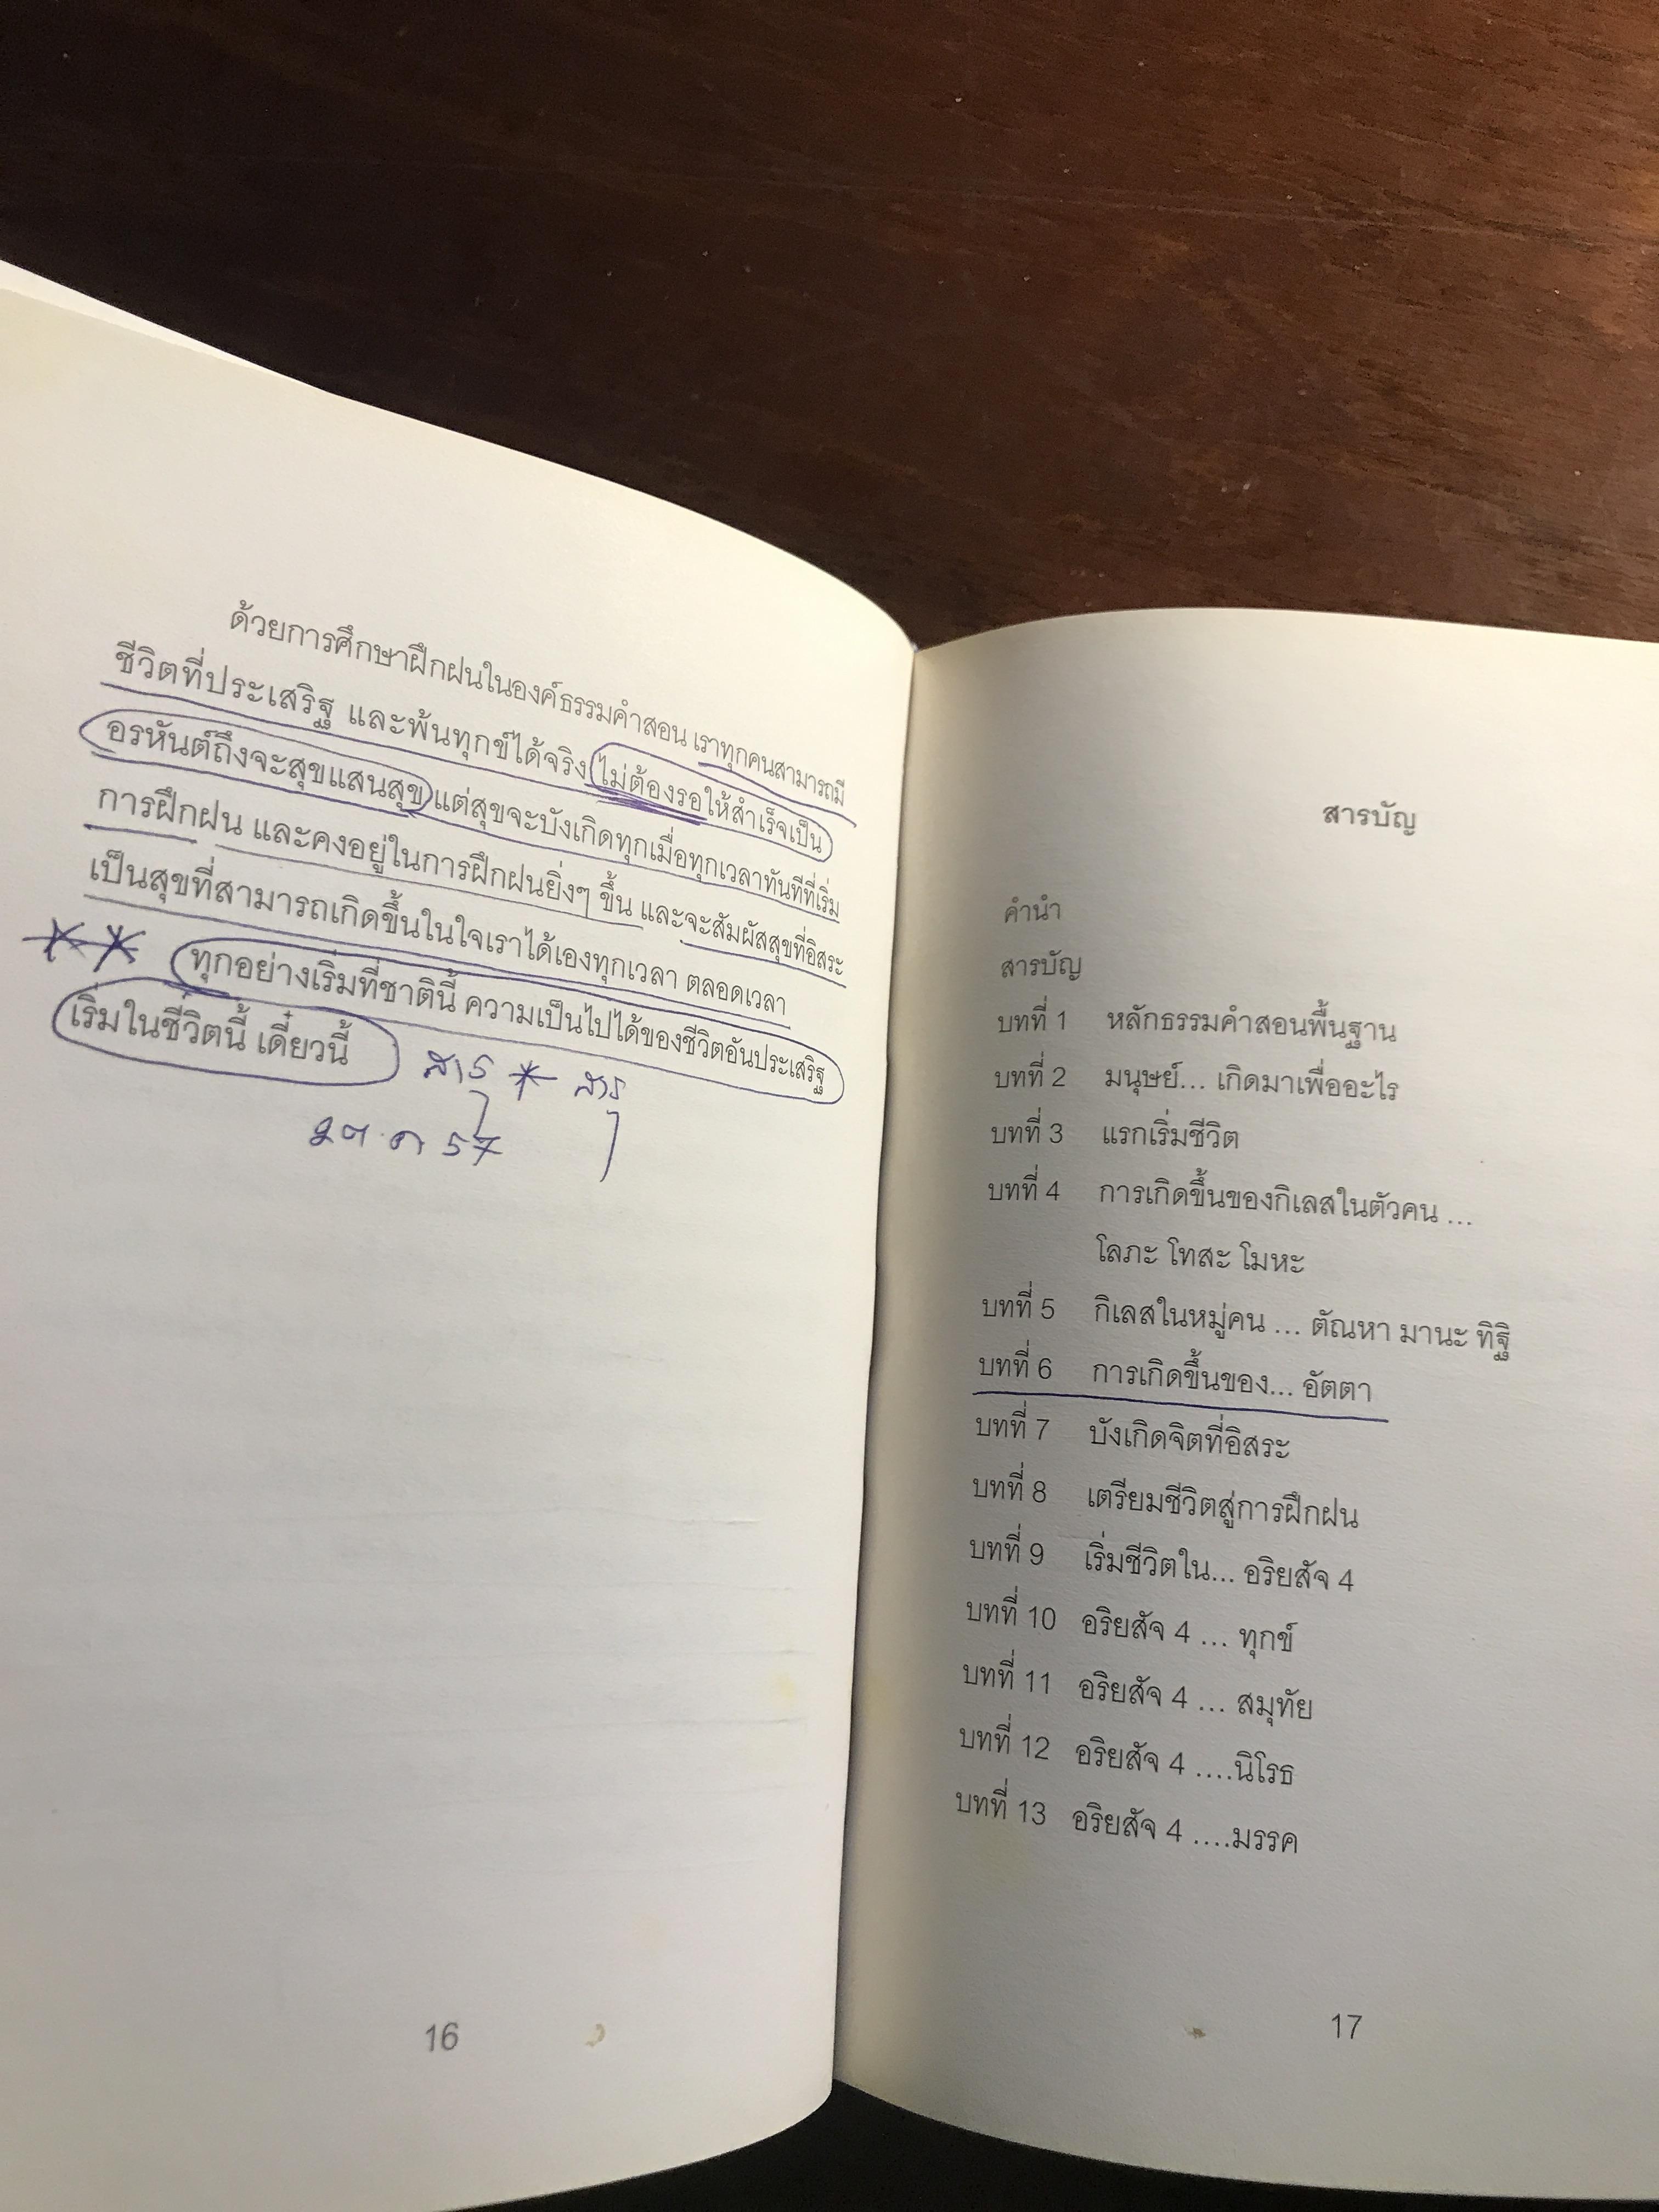 ด้วยการศึกษาฝึกฝนในองค์ธรรมคำสอน เราทุกคนสามารถมี
ชีวิตที่ประเสริฐ และพ้นทุกข์ได้จริง ไม่ต้องรอให้สำเร็จเป็น
อรหันต์ถึงจะสุขแสนสุข แต่สุขจะบังเกิดทุกเมื่อทุกเวลาทันทีที่เริ่ม
การฝึกฝน และคงอยู่ในการฝึกฝนยิ่งๆ ขึ้น และจะสัมผัสสุขที่อิสระ
เป็นสุขที่สามารถเกิดขึ้นในใจเราได้เองทุกเวลา ตลอดเวลา
ทุกอย่างเริ่มที่ชาตินี้ ความเป็นไปได้ของชีวิตอันประเสริฐ
เริ่มในชีวิตนี้ เดี๋ยวนี้
16
สารบัญ
คำนำ
สารบัญ
บทที่ 1 หลักธรรมคำสอนพื้นฐาน
บทที่ 2 มนุษย์... เกิดมาเพื่ออะไร
บทที่ 3 แรกเริ่มชีวิต
บทที่ 4 การเกิดขึ้นของกิเลสในตัวคน ...
โลภะ โทสะ โมหะ
บทที่ 5 กิเลสในหมู่คน ... ตัณหา มานะ ทิฐิ
บทที่ 6 การเกิดขึ้นของ... อัตตา
บทที่ 7 บังเกิดจิตที่อิสระ
บทที่ 8 เตรียมชีวิตสู่การฝึกฝน
บทที่ 9 เริ่มชีวิตใน... อริยสัจ 4
บทที่ 10 อริยสัจ 4 ... ทุกข์
บทที่ 11 อริยสัจ 4 ... สมุทัย
บทที่ 12 อริยสัจ 4 ....นิโรธ
บทที่ 13 อริยสัจ 4 ....มรรค
17